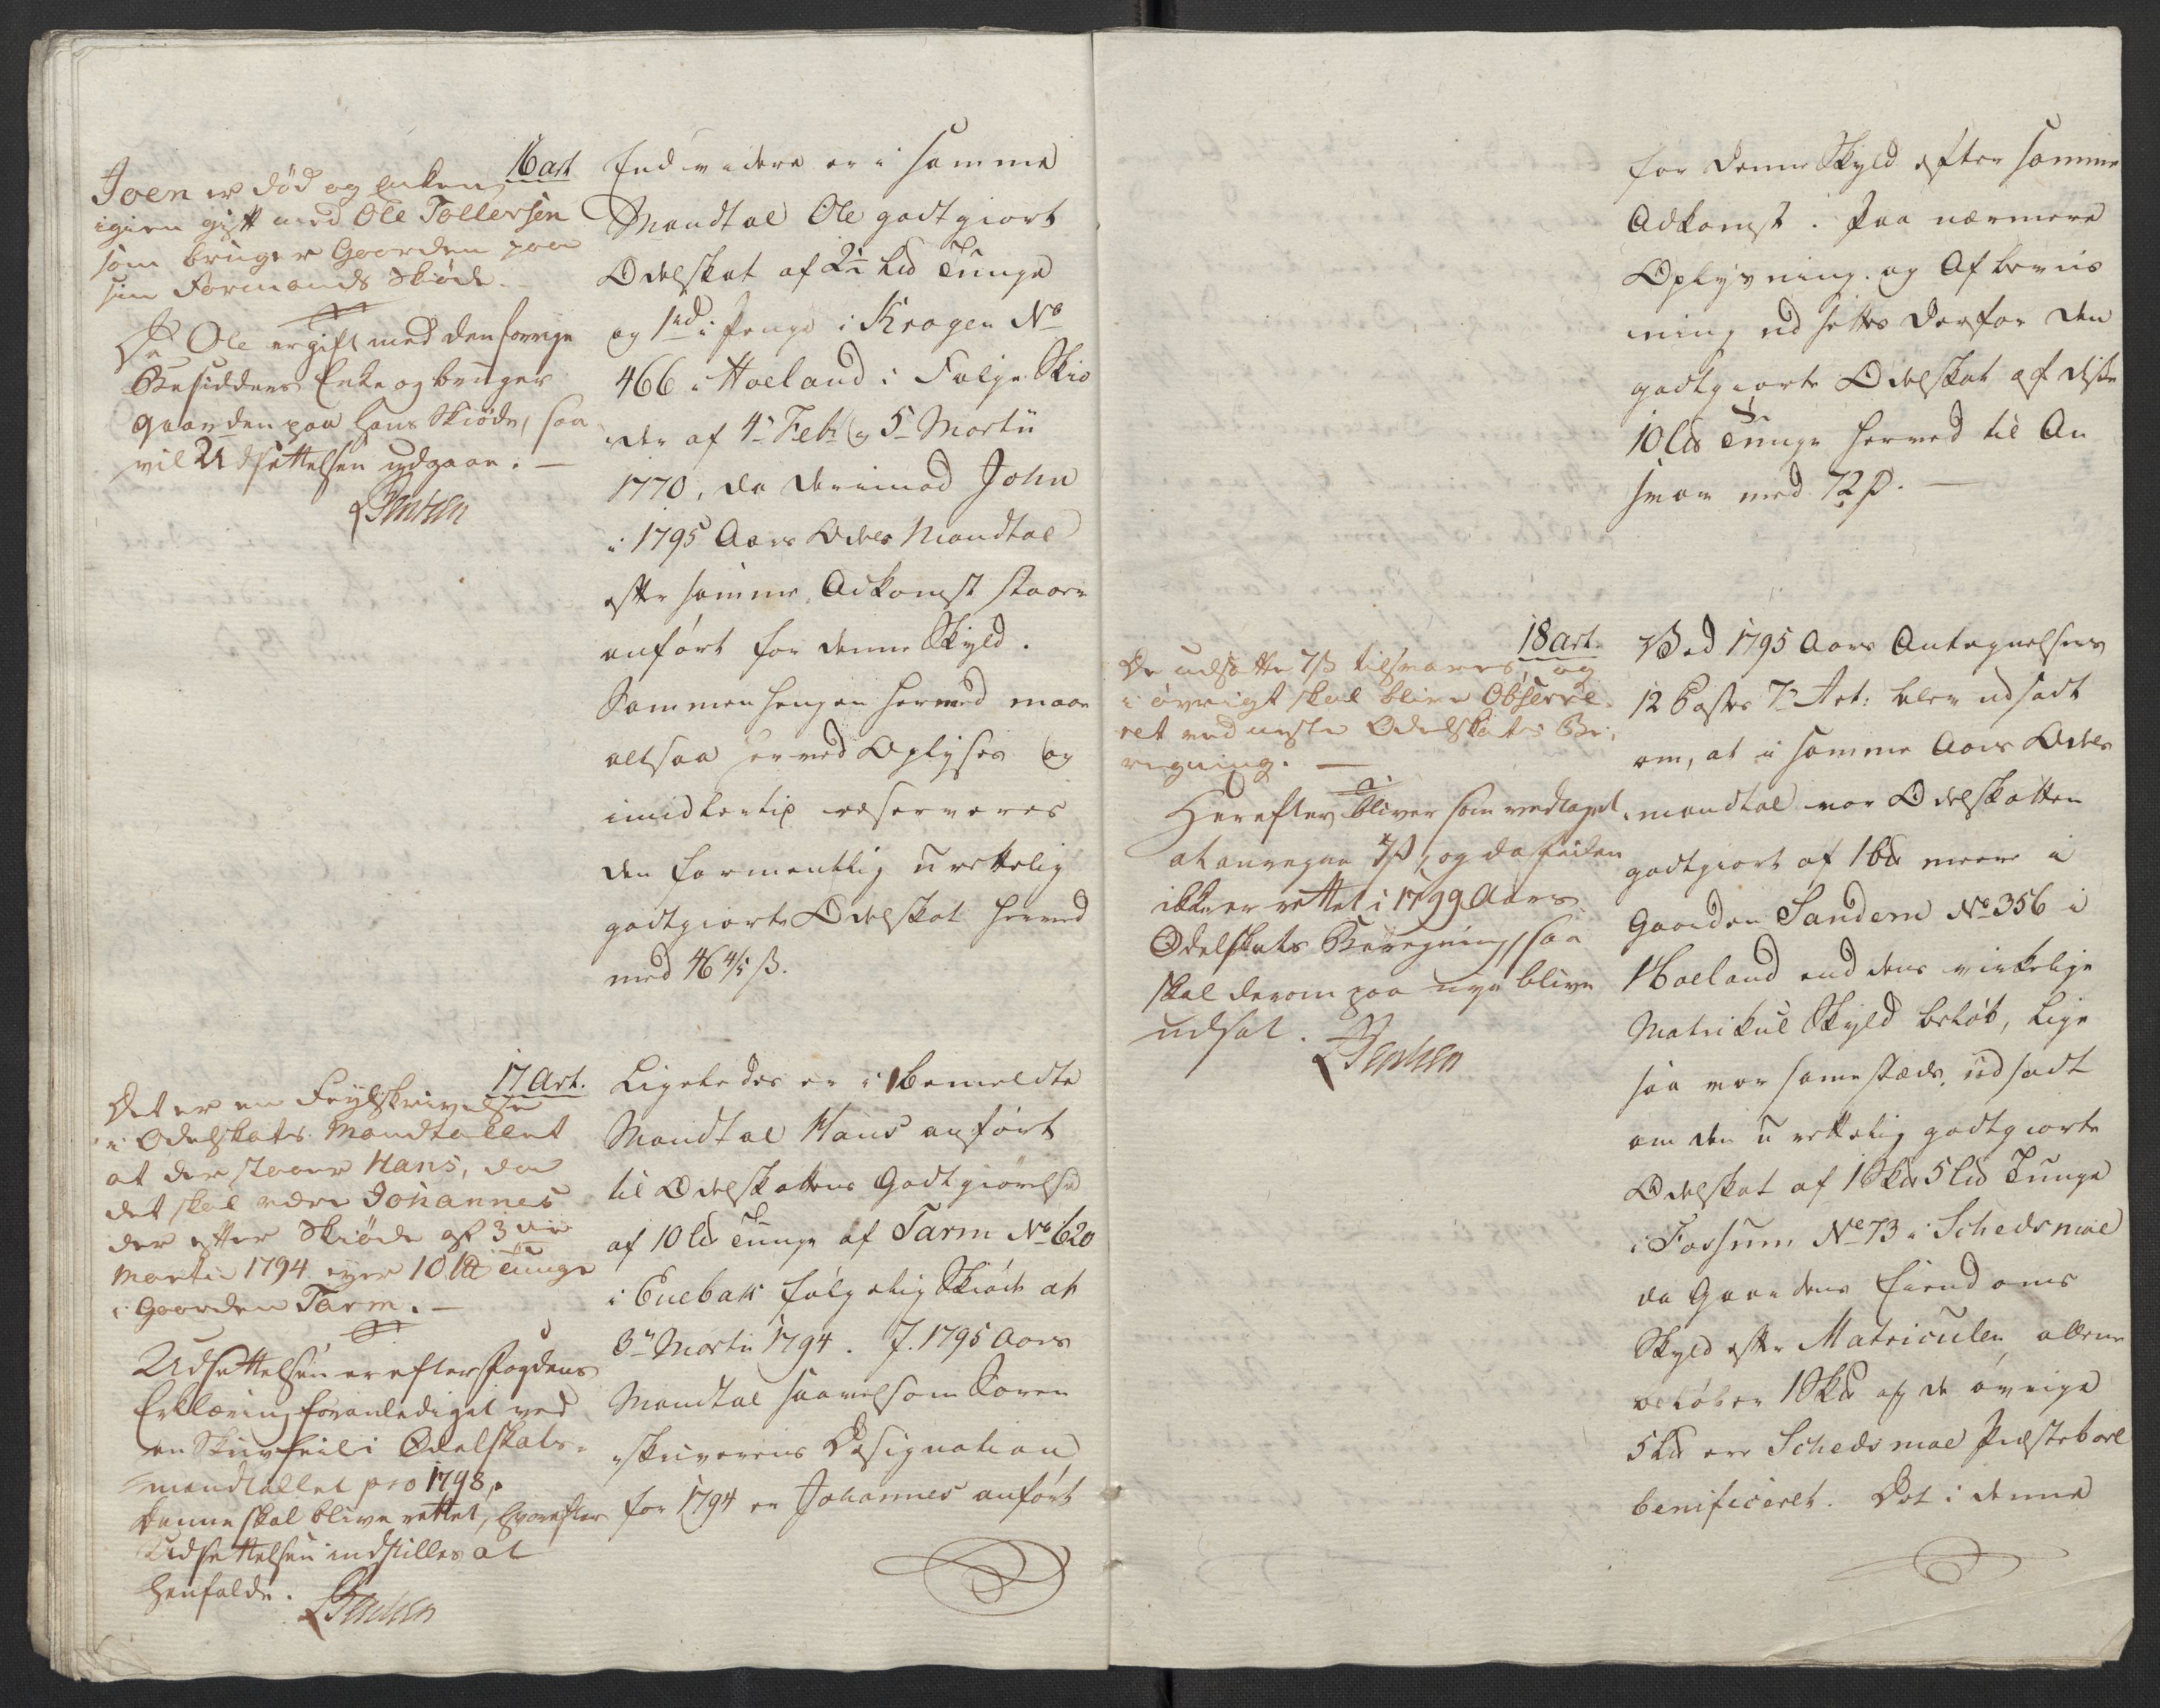 16 art
Joen er död og enken
igien gift med Ole Tollersen
som bruger Gaarden paa
sin Formands Skiöde.
Da Ole er gift med den forrige
Besidders Enke og bruger
gaarden paa hans Skiöde, saa
vil Udsettelsen udgaae. —
Jensen
Endvidere er i samme
Mandtal Ole godtgiort
Odelskat af 2½ Lid Tunge
og 1 i penge i Kragen No
466 i Høeland i Følge Skiö
der af 4 Feb: og 5 Martii
1770, da derimod John
i 1795 Aars Odels Mandtal
efter samme Adkomst staaer
anført for denne Skyld.
Sammenhengen hermed maae
altsaa herved Oplyses og
imidlertid reserveres
den formentlig urettelig
godtgiorte Odelskat herved
med 46 4/5 ß.
17 Art.
Det er en Feylskrivelse
i Odelskats Mandtallet
at der staaer Hans, da
det skal være Johannes
der efter Skiöde af 3die
Martii 1794 eyer 10 Lid Tunge
i Gaarden Tarm. —
Udsettelsen er efter Fogdens
Erklæring foranlediget ved
en Skrivfeil i Odelskats-
mandtallet pro 1798,
denne skal blive rettet, hvorefter
Udsettelsen indstilles at
henfalde.
Jensen
Ligeledes er i bemeldte
Mandtal Hans anført
til Odelskattens Godtgiörelse
af 10 Lid Tunge af Tarm No 620
i Enebak følgelig Skiöde af
3 Martii 1794. I 1795 Aars
Mandtal saavelsom Soren
skriverens Designation
for 1794 er Johannes anført
for denne Skyld efter samme
Adkomst. Paa nærmere
Oplysning og Afbeviis
ning udsettes derfor den
godtgiorte Odelskat af disse
10 Lid Tunge herved til An
svar med 72 ß. —
18 art.
De udsatte 7 ß tilsvares, og
i øvrigt skal blive Observe-
ret ved neste Odelskats Be-
regning. —
Herefter bliver som vedtaget
at anregne 7 ß, og da feilen
ikke er rettet i 1799 Aars
Odelskats Beregning, saa
skal derom paa nye blive
udsat.
Jensen
Ved 1795 Aars Antegnelsers
12 Postes 7 Art: blev udsadt
om, at i samme Aars Odels
mandtal var Odelskatten
godtgiort af 1 meere i
Gaarden Sandem No 356 i
Høeland end dens virkelige
Matrikul Skyld beløb, lige
saa var sammesteds udsadt
om den urettelig godtgiorte
Odelskat af 1 Skd 5 Lid Tunge
i Fossum No 73 i Schedsmoe
da Gaardens Eiendoms
Skyld efter Matriculen allene
beløber 1 Skd og de øvrige
5 Lid ere Schedsmoe Præstebord
benificeret. Det i denne